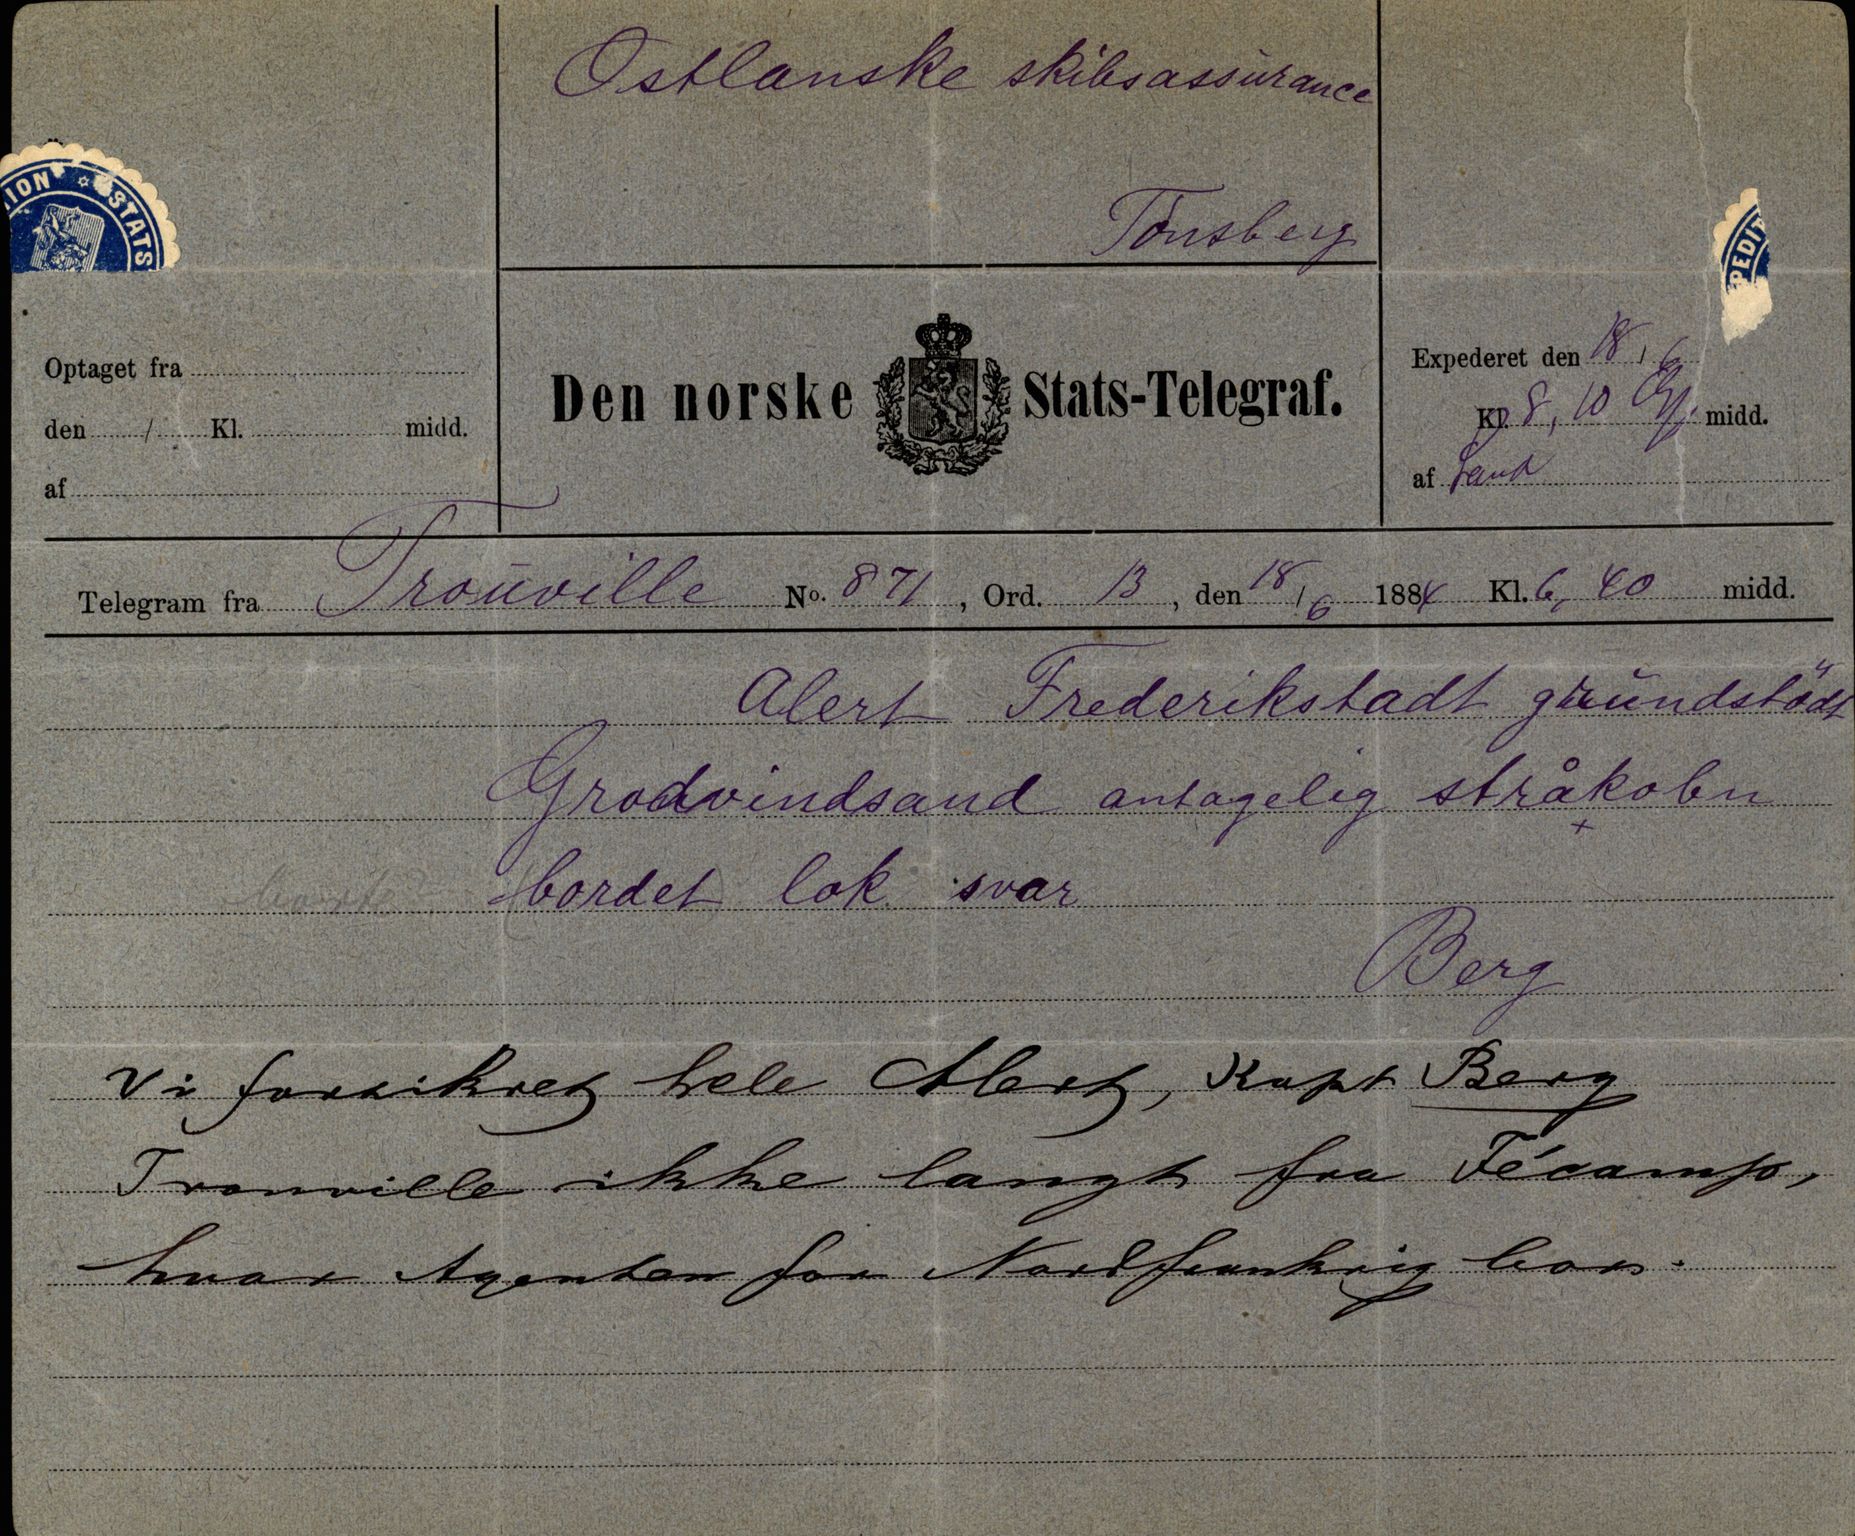 Ostlanske skibsassurance
Tönsberg
ION ✡ STATS
PEDIT
Optaget fra
den / Kl. midd.
af
Den norske Stats-Telegraf.
Expederet den 18/6
Kl. 8,10 midd.
af
Telegram fra Trouville No. 871, Ord. 13, den 18/6 1884 Kl. 6,40 midd.
Alert Frederikstadt grundstödt
Grodvindsand antagelig stråkobn
bordet lok svar
Berg
Vi forsikret hele Alert, Kapt Berg
Trouville ikke langt fra Fécamp,
hvor Agenten for Nordfrankrig bor.